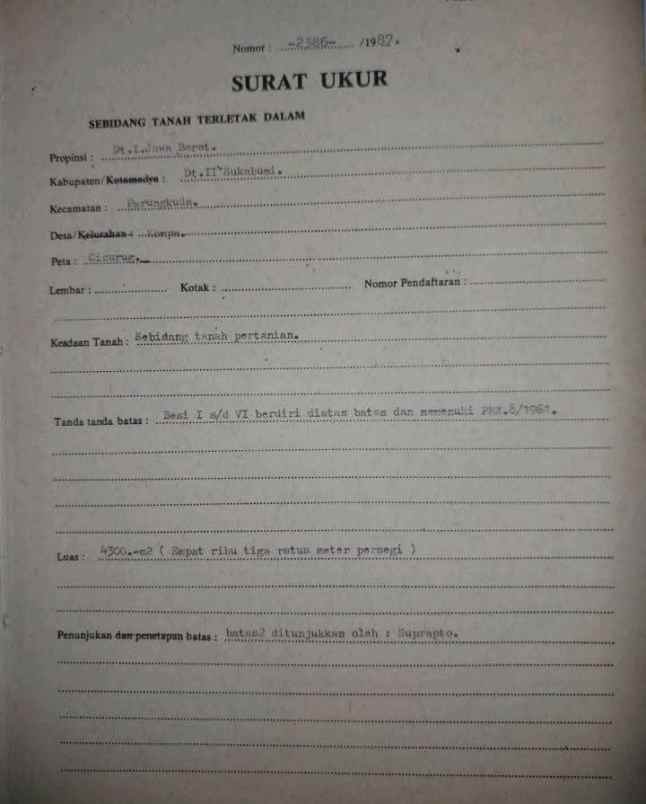 Nomor : -2386- /1987.
SURAT UKUR
SEBIDANG TANAH TERLETAK DALAM
Propinsi : Dt.I.Jawa Barat.
Kabupaten/Kotamadya : Dt.II Sukabumi.
Kecamatan : Parungkuda.
Desa/Kelurahan : Kompa.
Peta : Cicurug.
Lembar : Kotak : Nomor Pendaftaran :
Keadaan Tanah : Sebidang tanah pertanian.
Tanda tanda batas : Besi I s/d VI berdiri diatas batas dan memenuhi PMA.8/1961.
Luas : 4300.-m2 ( Empat ribu tiga ratus meter persegi )
Penunjukan dan penetapan batas : batas2 ditunjukkan oleh : Suprapto.